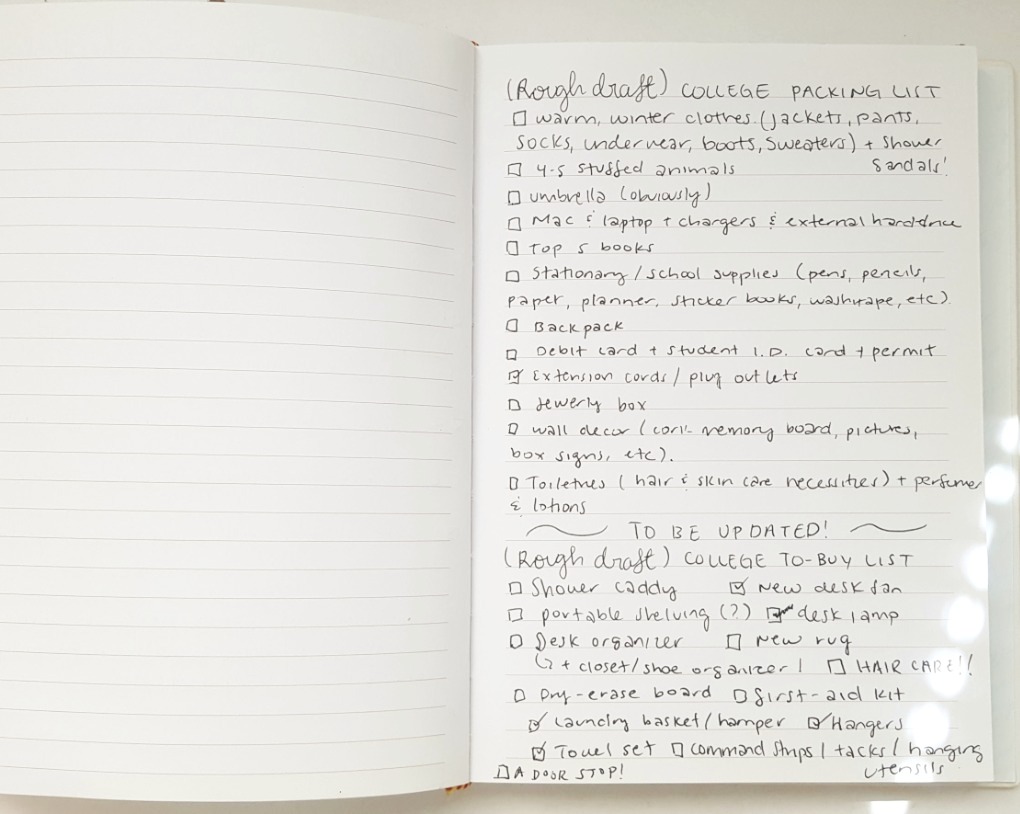 (Rough draft) COLLEGE PACKING LIST
☐ warm, winter clothes (jackets, pants,
socks, underwear, boots, sweaters) + shower
sandals!
☐ 4-5 stuffed animals
☐ umbrella (obviously)
☐ Mac & laptop + chargers & external harddrive
☐ Top 5 books
☐ Stationary/school supplies (pens, pencils,
paper, planner, sticker books, washitape, etc).
☐ Backpack
☐ Debit card + student I.D. card + permit
☑ Extension cords/plug outlets
☐ Jewerly box
☐ wall decor (cork memory board, pictures,
box signs, etc).
☐ Toiletries (hair & skin care necessities) + perfumes
& lotions
TO BE UPDATED!
(Rough draft) COLLEGE TO-BUY LIST
☐ Shower caddy ☑ New desk fan
☐ portable shelving (?) ☑ desk lamp
☐ Desk organizer ☐ New rug
↳ + closet/shoe organizer! ☐ HAIR CARE!!
☐ Dry-erase board ☐ first-aid kit
☑ Laundry basket/hamper ☑ Hangers
☑ Towel set ☐ command strips/tacks/hanging
utensils
☐ A DOOR STOP!